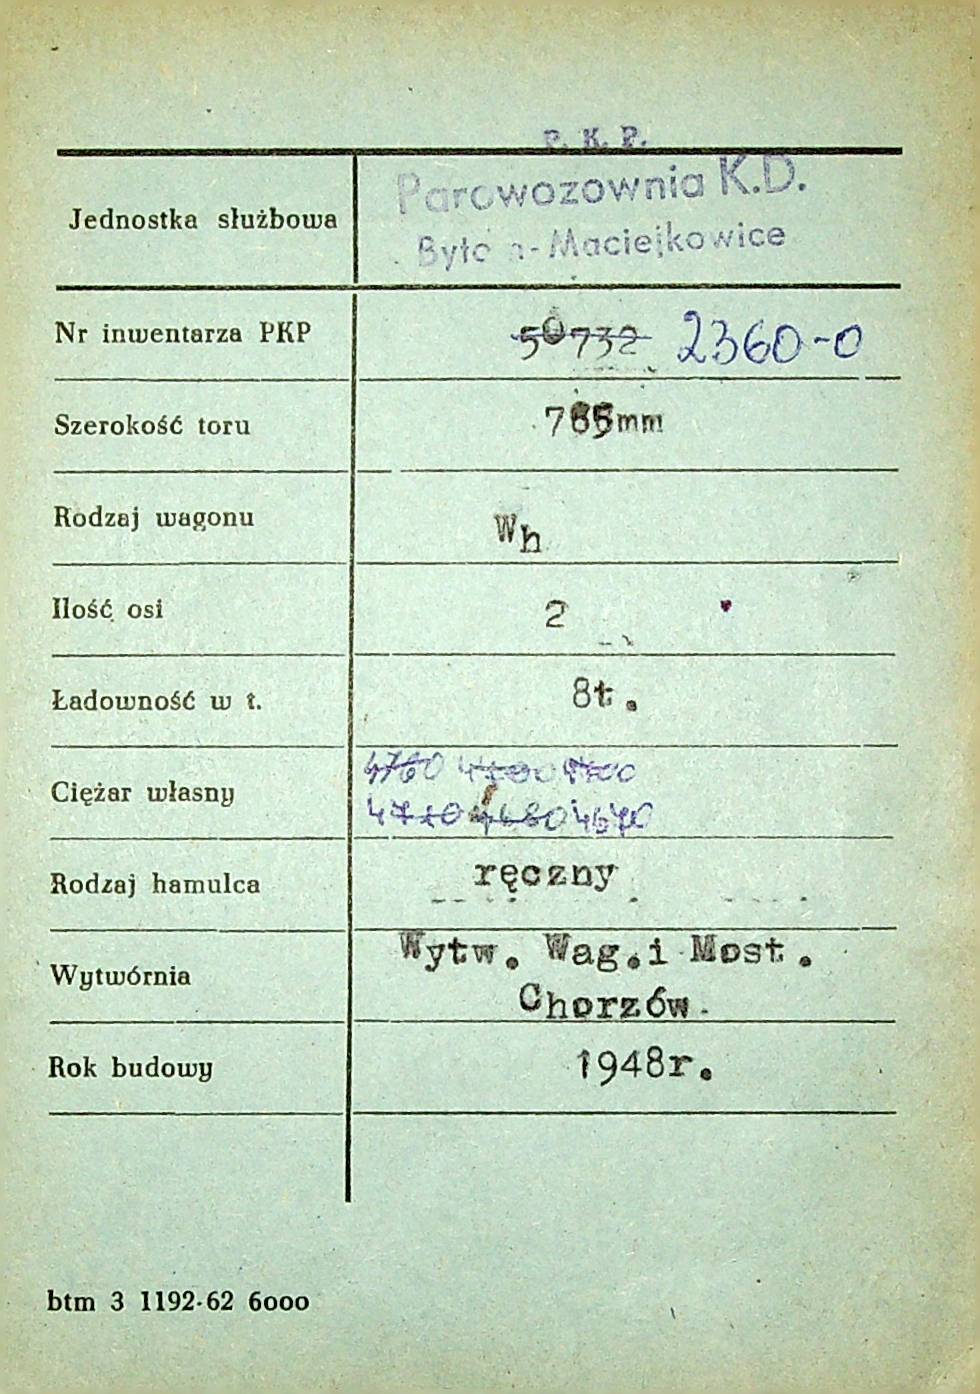 P. K. P.
Parowozownia K.D.
Jednostka służbowa
Maciejkowice
Nr inwentarza PKP 50732 2360-0
Szerokość toru 785mm
Rodzaj wagonu Wh
Ilość osi 2
Ładowność w t. 8t.
4760 4700
Ciężar własny
4710 4680 4670
Rodzaj hamulca ręczny
Wytw. Wag. i Most.
Wytwórnia
Chorzów.
Rok budowy 1948r.
btm 3 1192-62 6000